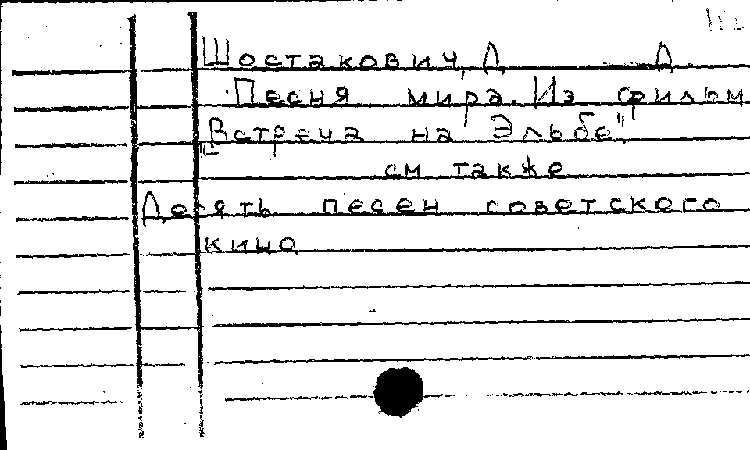 Шостакович, Д. Д.
Песня мира. Из фильм
"Встреча на Эльбе"
см также
Десять песен советского
кино